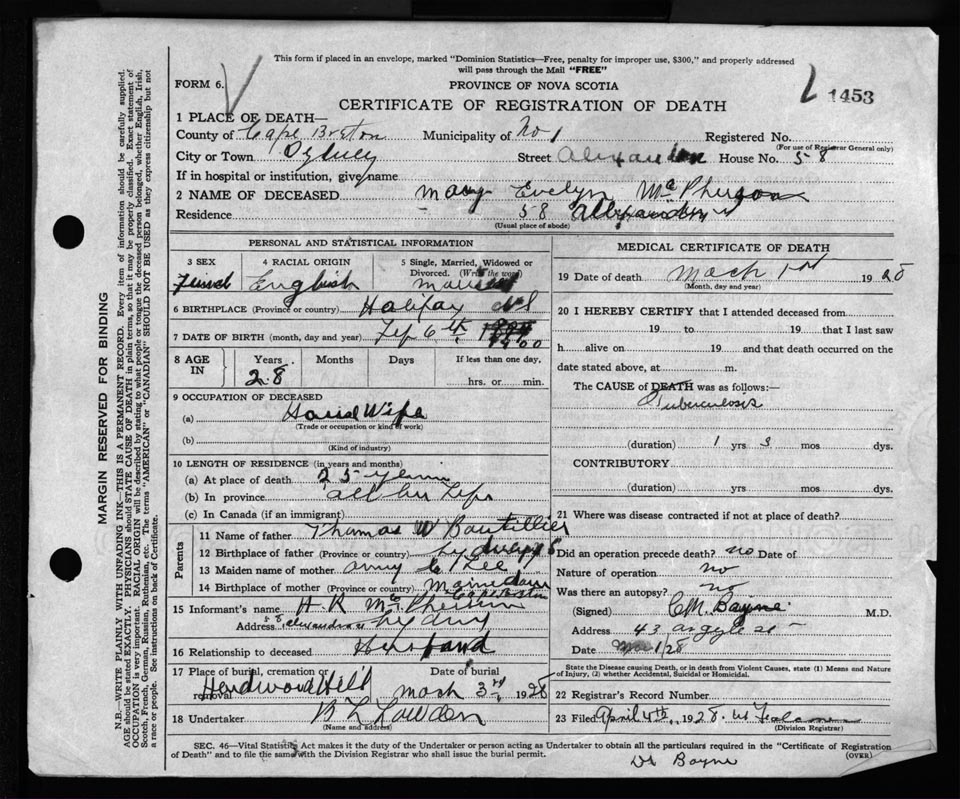 This form if placed in an envelope, marked "Dominion Statistics—Free, penalty for improper use, $300," and properly addressed
will pass through the Mail "FREE"
FORM 6.
PROVINCE OF NOVA SCOTIA
CERTIFICATE OF REGISTRATION OF DEATH
1453
1 PLACE OF DEATH—
County of Cape Breton Municipality of No 1 Registered No.
(For use of Registrar General only)
City or Town Sydney Street Alexander House No. 58
If in hospital or institution, give name
2 NAME OF DECEASED Mary Evelyn McPherson
Residence 58 Alexander
(Usual place of abode)
MARGIN RESERVED FOR BINDING
N.B.—WRITE PLAINLY WITH UNFADING INK—THIS IS A PERMANENT RECORD. Every item of information should be carefully supplied.
AGE should be stated EXACTLY. PHYSICIANS should STATE CAUSE OF DEATH in plain terms, so that it may be properly classified. Exact statement of
OCCUPATION is very important. RACIAL ORIGIN will be described by stating to what people or tongue the deceased person belonged, whether English, Irish,
Scotch, French, German, Russian, Ruthenian, etc. The terms "AMERICAN" or "CANADIAN" SHOULD NOT BE USED as they express citizenship but not
a race or people. See instructions on back of Certificate.
PERSONAL AND STATISTICAL INFORMATION
3 SEX
4 RACIAL ORIGIN English
5 Single, Married, Widowed or
Divorced. (Write the word)
Married
6 BIRTHPLACE (Province or country) Halifax NS
7 DATE OF BIRTH (month, day and year) 6th 1900
8 AGE IN
Years 28 Months Days
If less than one day,
hrs. or min.
9 OCCUPATION OF DECEASED
(a) House Wife
(Trade or occupation or kind of work)
(b)
(Kind of industry)
10 LENGTH OF RESIDENCE (in years and months)
(a) At place of death 25 years
(b) In province all her life
(c) In Canada (if an immigrant)
Parents
11 Name of father Thomas W Boutillier
12 Birthplace of father (Province or country) Sydney
13 Maiden name of mother Lee
14 Birthplace of mother (Province or country) Cape Breton
15 Informant's name H. R McPherson
Address 58 Alexander Sydney
16 Relationship to deceased Husband
17 Place of burial, cremation or removal Hardwood Hill
Date of burial March 3rd 1928
18 Undertaker
(Name and address)
MEDICAL CERTIFICATE OF DEATH
19 Date of death March 1st 1928
(Month, day and year)
20 I HEREBY CERTIFY that I attended deceased from
19 to 19 that I last saw
h alive on 19 and that death occurred on the
date stated above, at m.
The CAUSE of DEATH was as follows:—
Tuberculosis
(duration) 1 yrs 3 mos dys.
CONTRIBUTORY
(duration) yrs. mos dys.
21 Where was disease contracted if not at place of death?
Did an operation precede death? no Date of
Nature of operation no
Was there an autopsy? no
(Signed) C.M. Bayne M.D.
Address 43 Argyle St
Date Mar 1/28
State the Disease causing Death, or in death from Violent Causes, state (1) Means and Nature
of Injury, (2) whether Accidental, Suicidal or Homicidal.
22 Registrar's Record Number
23 Filed April 4th, 1928.
(Division Registrar)
SEC. 46—Vital Statistics Act makes it the duty of the Undertaker or person acting as Undertaker to obtain all the particulars required in the "Certificate of Registration
of Death" and to file the same with the Division Registrar who shall issue the burial permit.
(OVER)
Dr Bayne